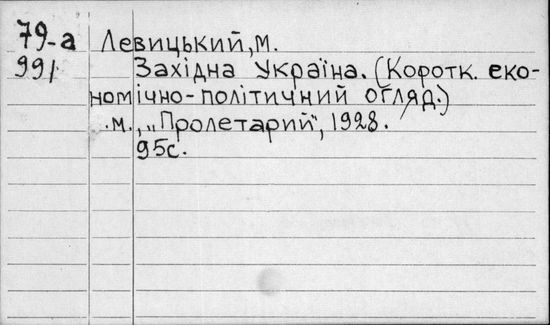 79-а Левицький, М.
991 Західна Україна. (Коротк. еко-
номічно-політичний огляд.)
.м., „Пролетарий", 1928.
95с.